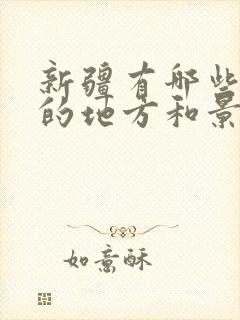 新疆有哪些
的地方和景
如意酥